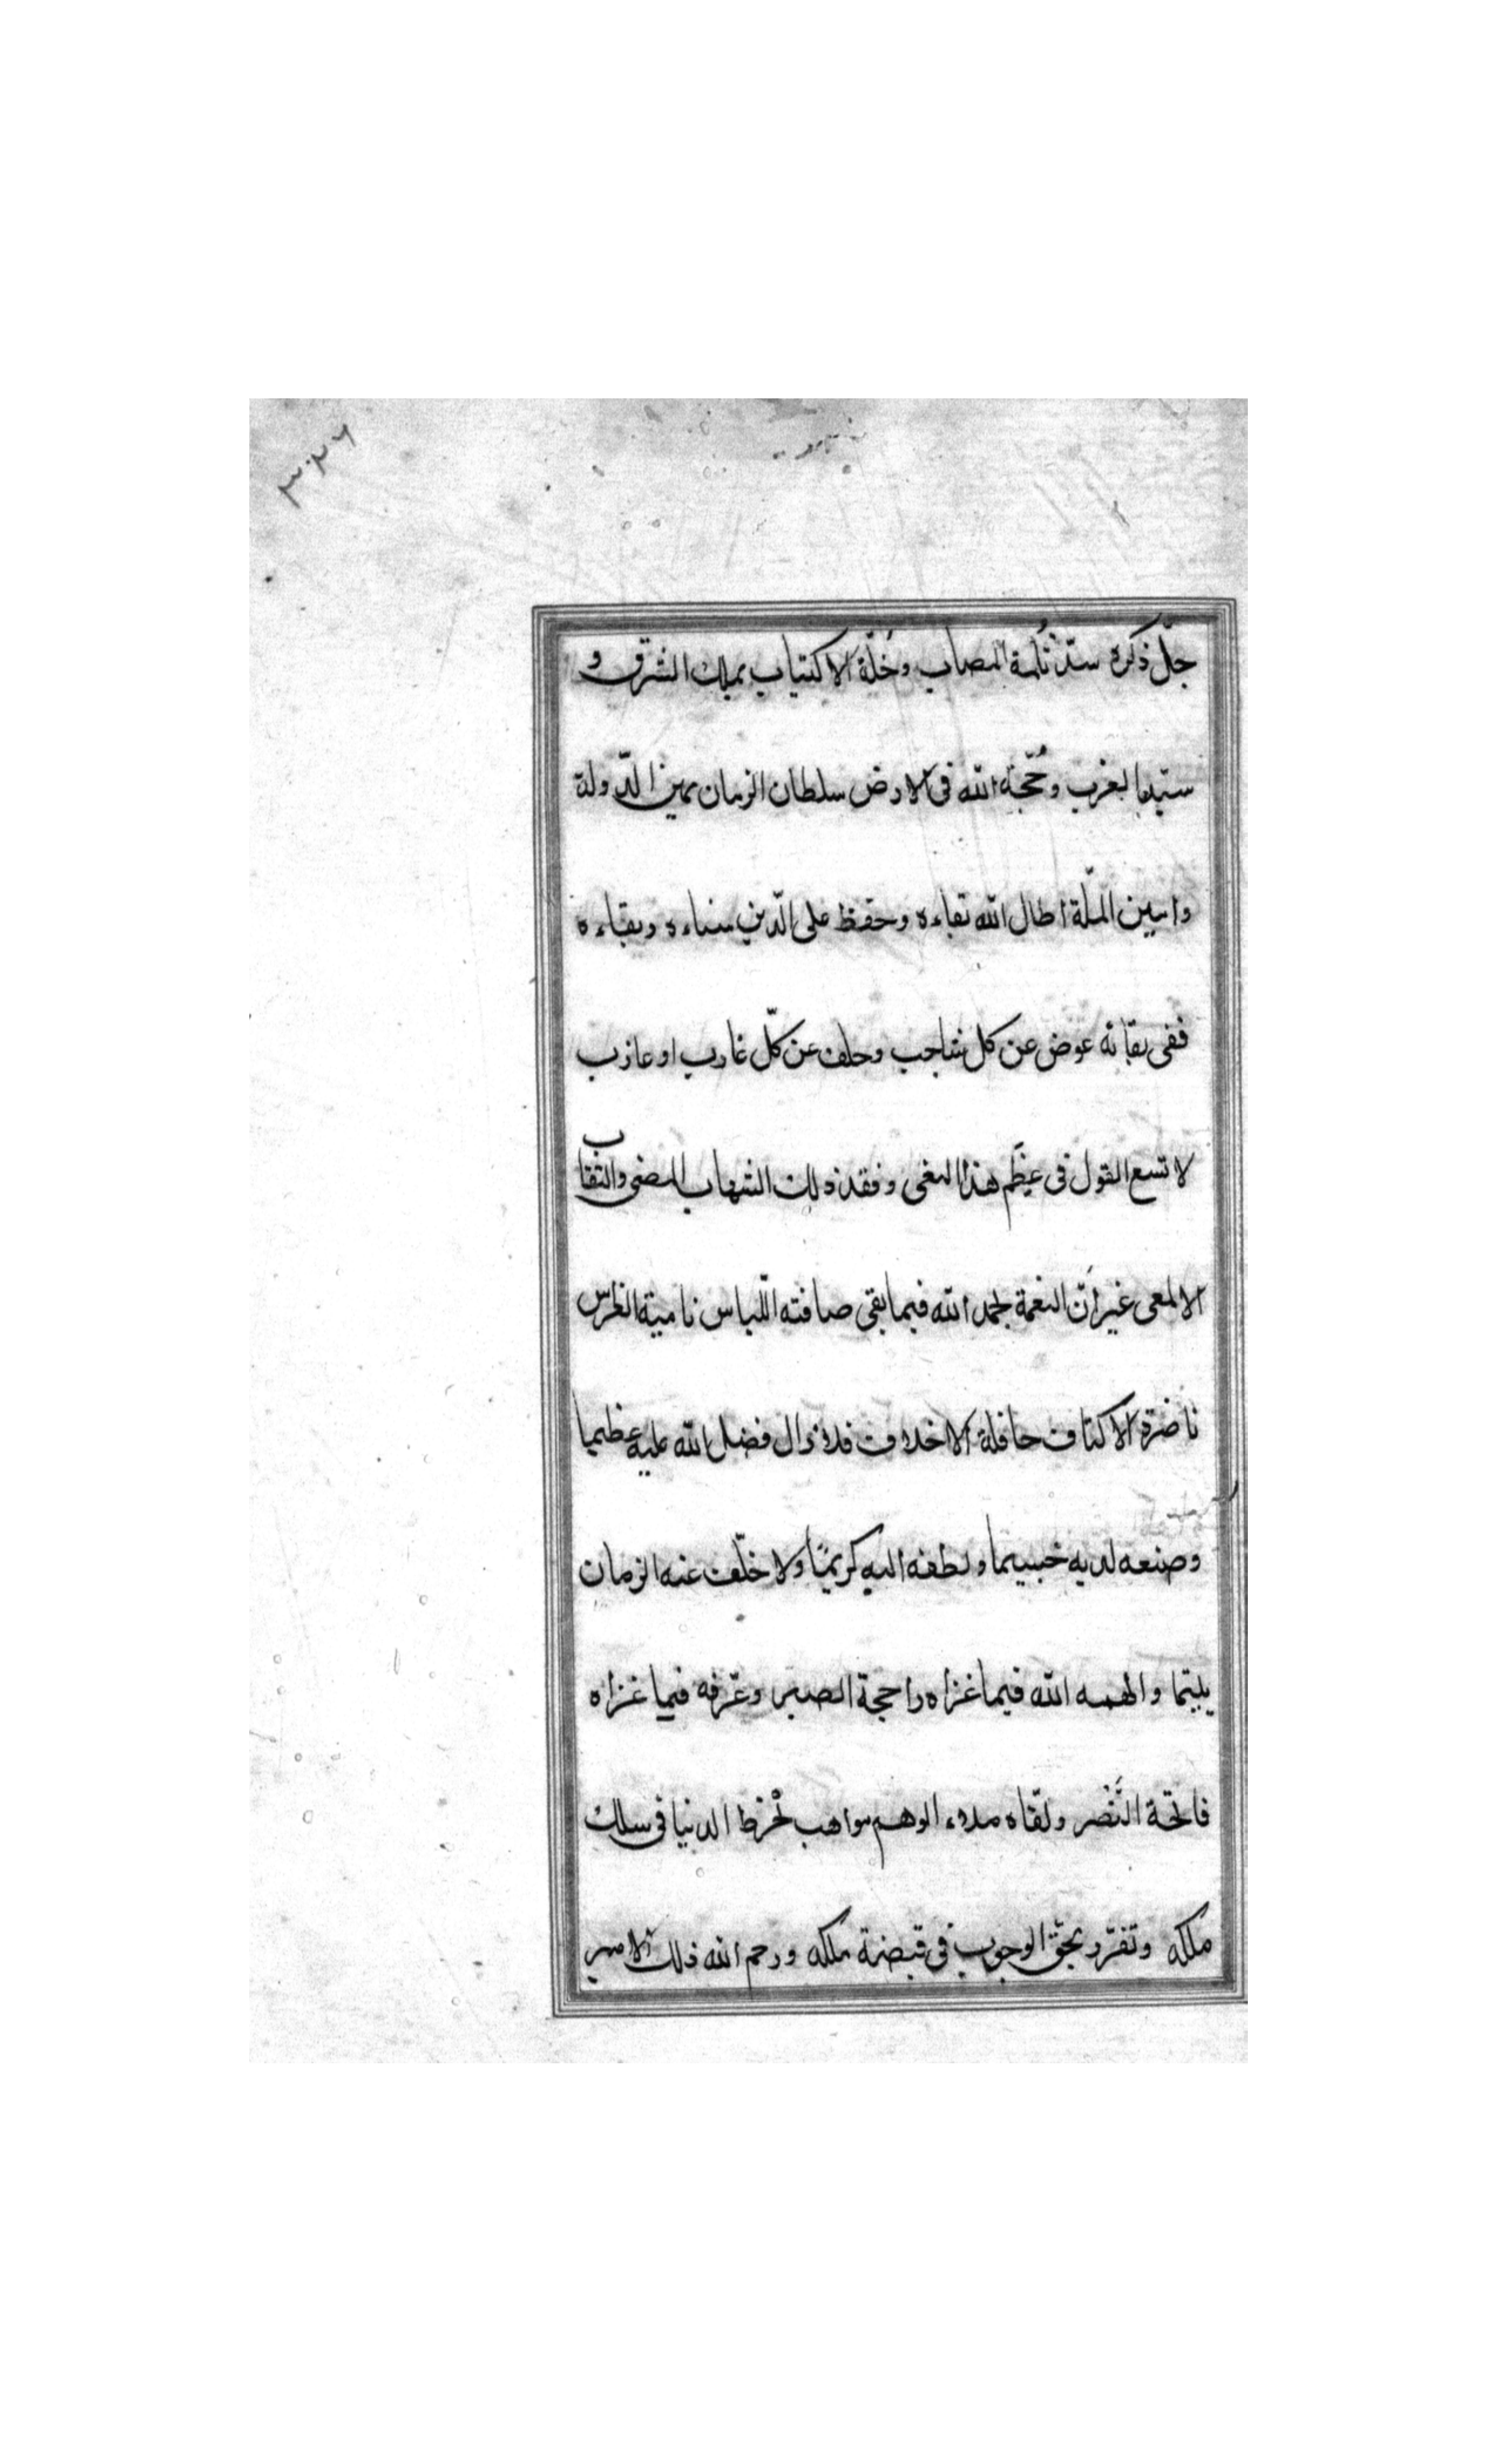 جلّ ذكره سدّ ثُلمة المصاب وخُلّة الاكتياب بملك الشرق و
سيّد الغرب وحُجّة الله فى الارض سلطان الزمان يمين الدّولة
وامين الملّة اطال الله بقاءه وحفظ على الدّين سناءه وبقاءه
ففى بقائه عوض عن كل شاجب وخلف عن كلّ غارب او عازب
لا تسع القول فى عِظَم هذا النعى وفقد ذلك الشهاب المضى والنقاب
الالمعى غير أنّ النعمة بحمد الله فيما بقى صافته اللّباس نامية الغراس
ناضرة الاكناف حافلة الاخلاف فلا زال فضل الله عليه عظيما
وصنعه لديه جسيما ولطفه اليه كريمًا ولا خلّف عنه الزمان
يتيما والهمه الله فيما عزاه راجحة الصبر وعرّفه فيما غزاه
فاتحة النَّصْر ولقّاه ملاء الوهم مواهب تخْرط الدنيا فى سلك
ملكه وتفرّد بحقّ الوجوب فى قبضة ملكه ورحم الله ذلك الامير